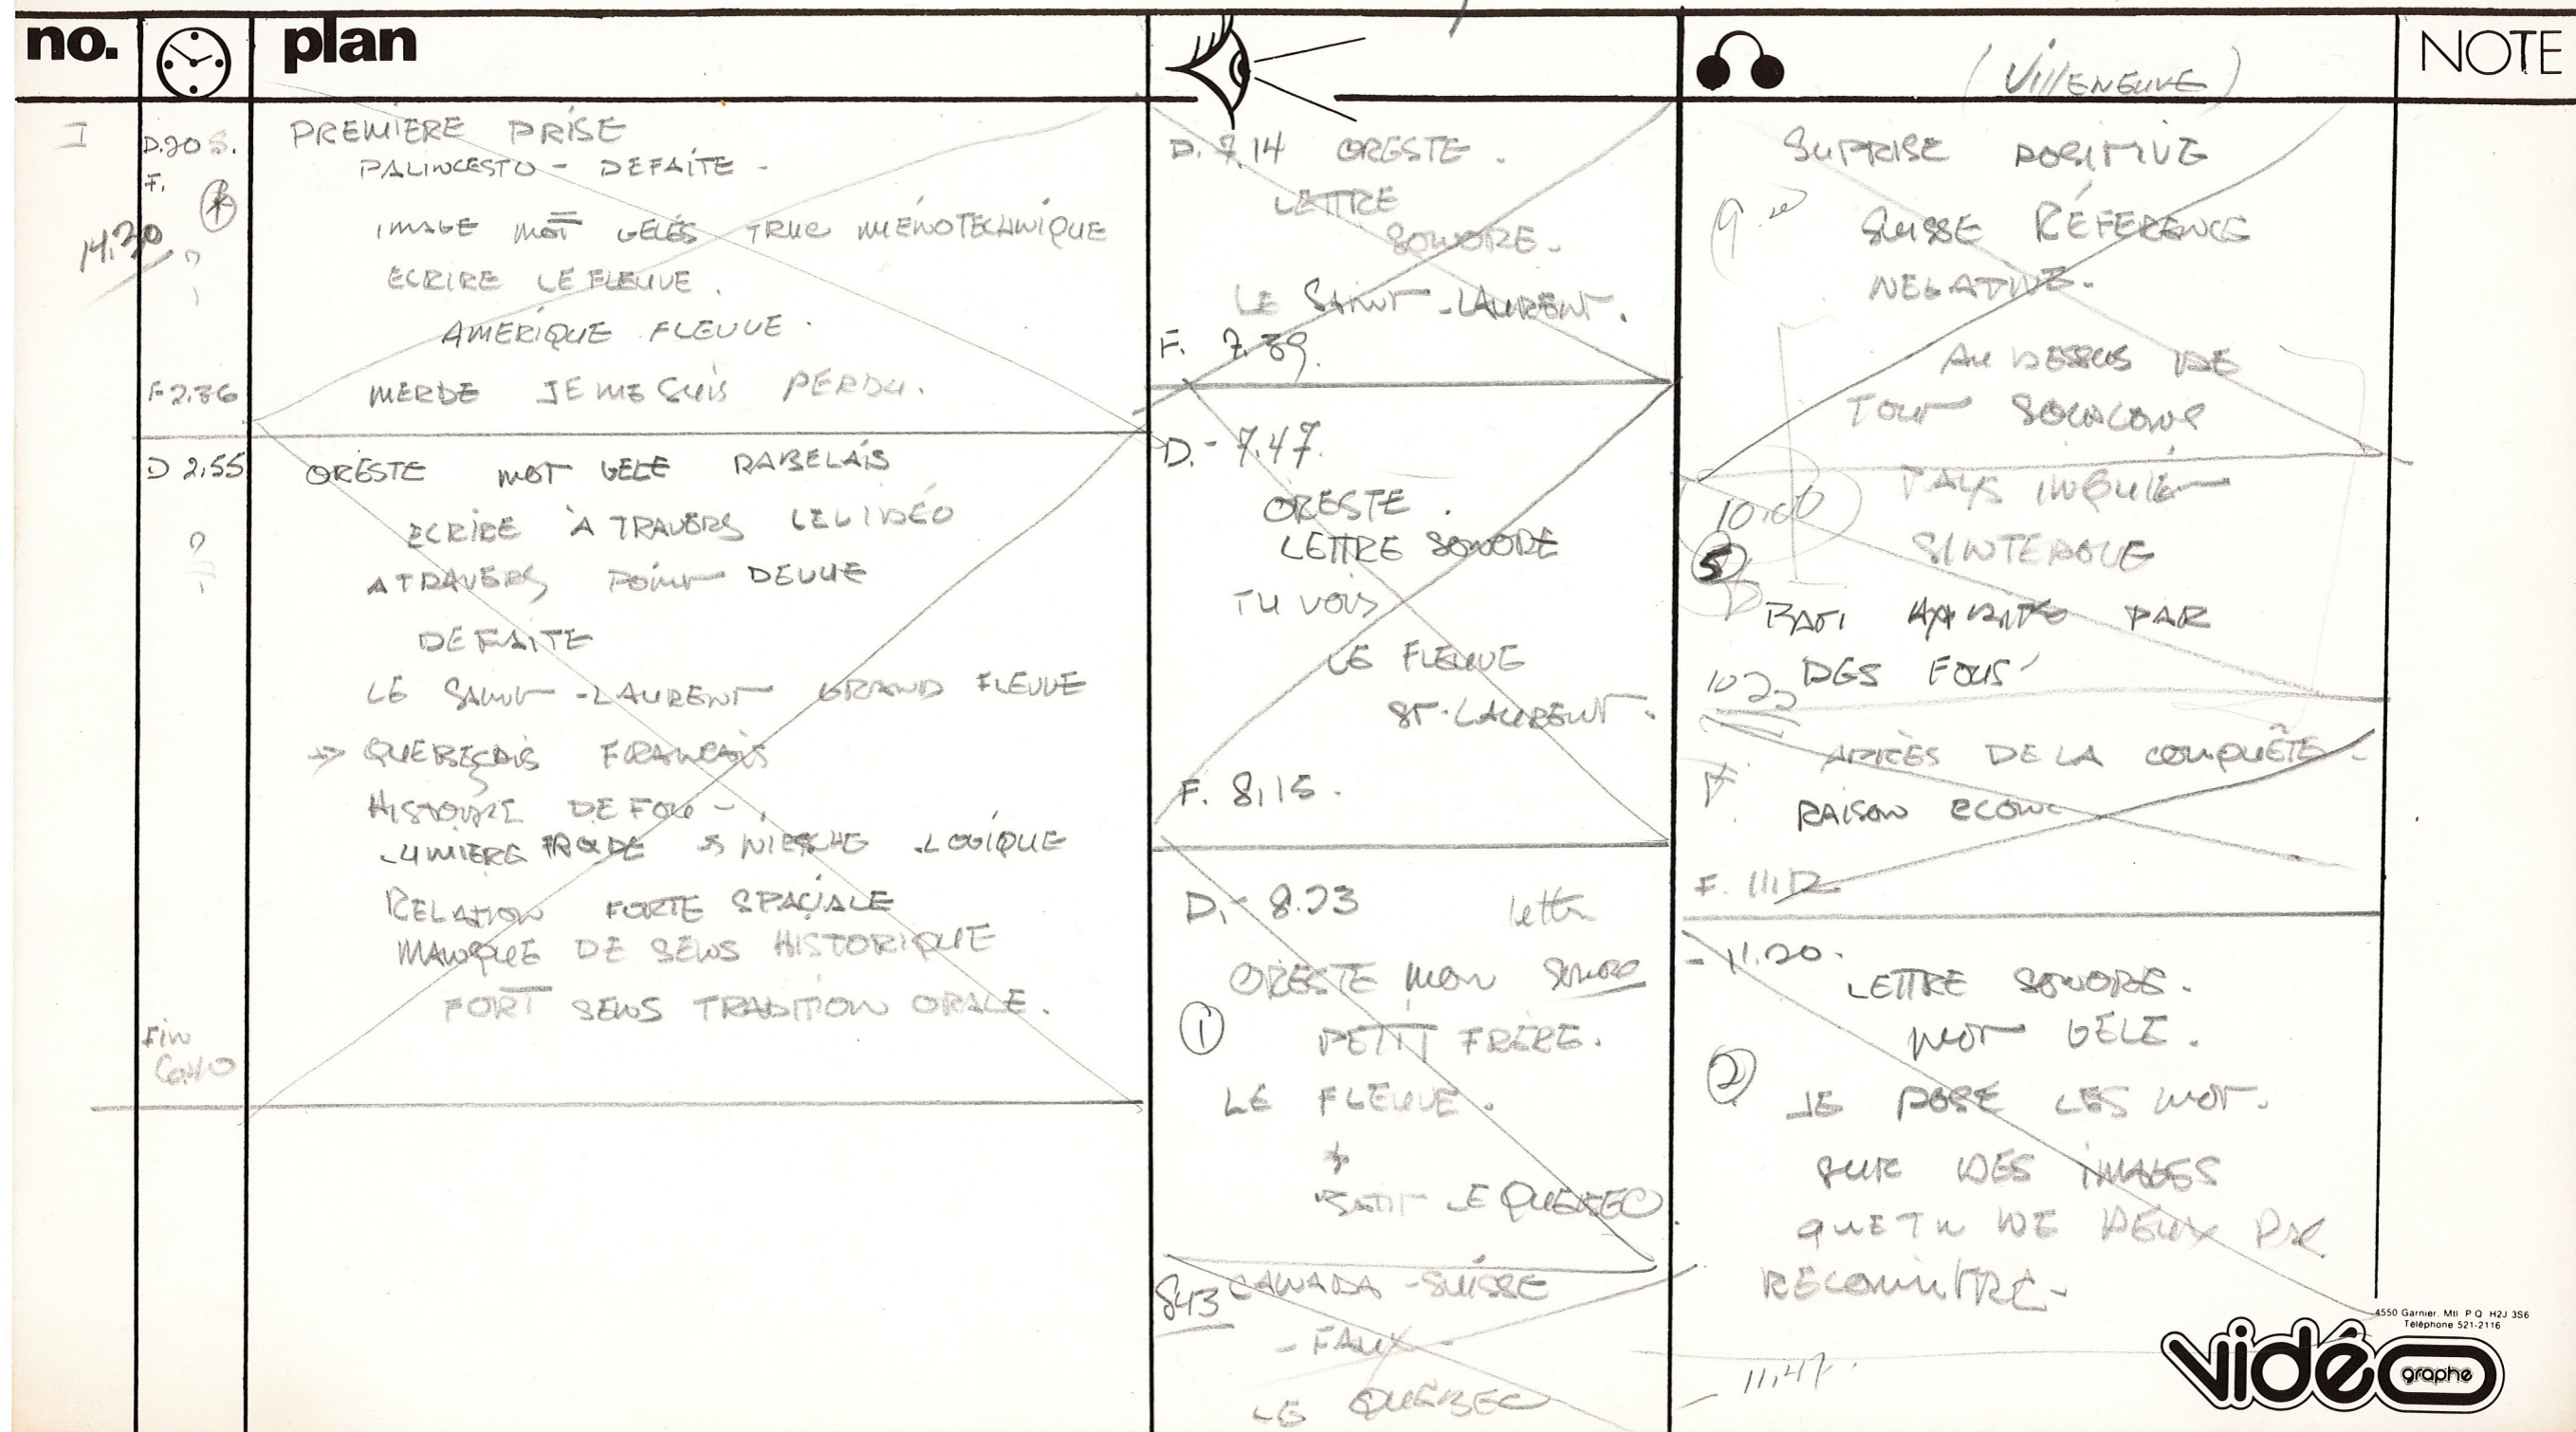 no.
plan
(VILLENEUVE)
NOTE
I
D.20 S.
F.
14.30
F 2.36
PREMIERE PRISE
PALINCESTO - DEFAITE -
IMAGE MOT GELÉS TRUC MENOTECHNIQUE
ECRIRE LE FLEUVE.
AMERIQUE FLEUVE.
MERDE JE ME SUIS PERDU.
D 2.55
ORESTE MOT GELE RABELAIS
ECRIRE À TRAVERS LE VIDÉO
A TRAVERS POINT DE VUE
DEFAITE
LE SAINT-LAURENT GRAND FLEUVE
→ QUEBEÇOIS FRANCAIS
HISTOIRE DE FOU -
LUMIERE FROIDE LOGIQUE
RELATION FORTE SPACIALE
MANQUE DE SENS HISTORIQUE
FORT SENS TRADITION ORALE.
FIN
D. 7.14 ORESTE.
LETTRE
SONORE.
LE SAINT-LAURENT.
F. 7.39.
D.- 7.47.
ORESTE.
LETTRE SONORE
TU VOIS
LE FLEUVE
ST-LAURENT.
F. 8.15.
D.- 8.23
ORESTE MON
① PETIT FRÈRE.
LE FLEUVE.
LE QUEBEC
843 CANADA - SUISSE
- FAUX -
LE QUÉBEC
SUPRISE POSITIVE
SUISSE RÉFERENCE
NEGATIVE.
AU DESSUS DE
TOUT SOUPÇONS
PAYS INQUIET
10.00
5
PAR
DES FOUS
APRÈS DE LA CONQUÊTE -
RAISON ECONO
F. 11.12
- 11.20.
LETTRE SONORE.
MOT GELE.
② JE POSE LES MOT.
SUR DES IMAGES
QUE TU NE PEUX PAS
RECONNITRE-
- 11.47.
4550 Garnier. Mtl P Q H2J 3S6
Téléphone 521-2116
vidéo
graphe